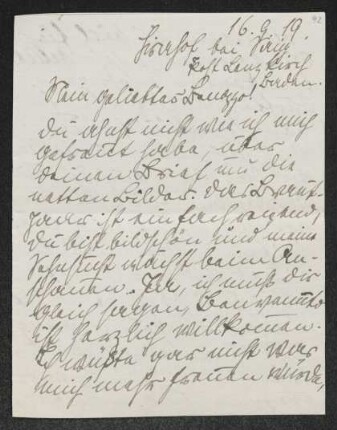 16.9.19.
bei
Post Lenzkirch
Baden.
Mein geliebter
du ahnst nicht wie ich mich
gefreut habe, über
deinen Brief und die
netten Bilder. Das Braut-
paar ist einfach reizend,
du bist bildschön und meine
Sehnsucht wächst beim An-
schauen. Ja, ich muß dir
gleich sagen,
ist herzlich willkommen.
Ich wüßte gar nicht wer
mich mehr freuen würde,